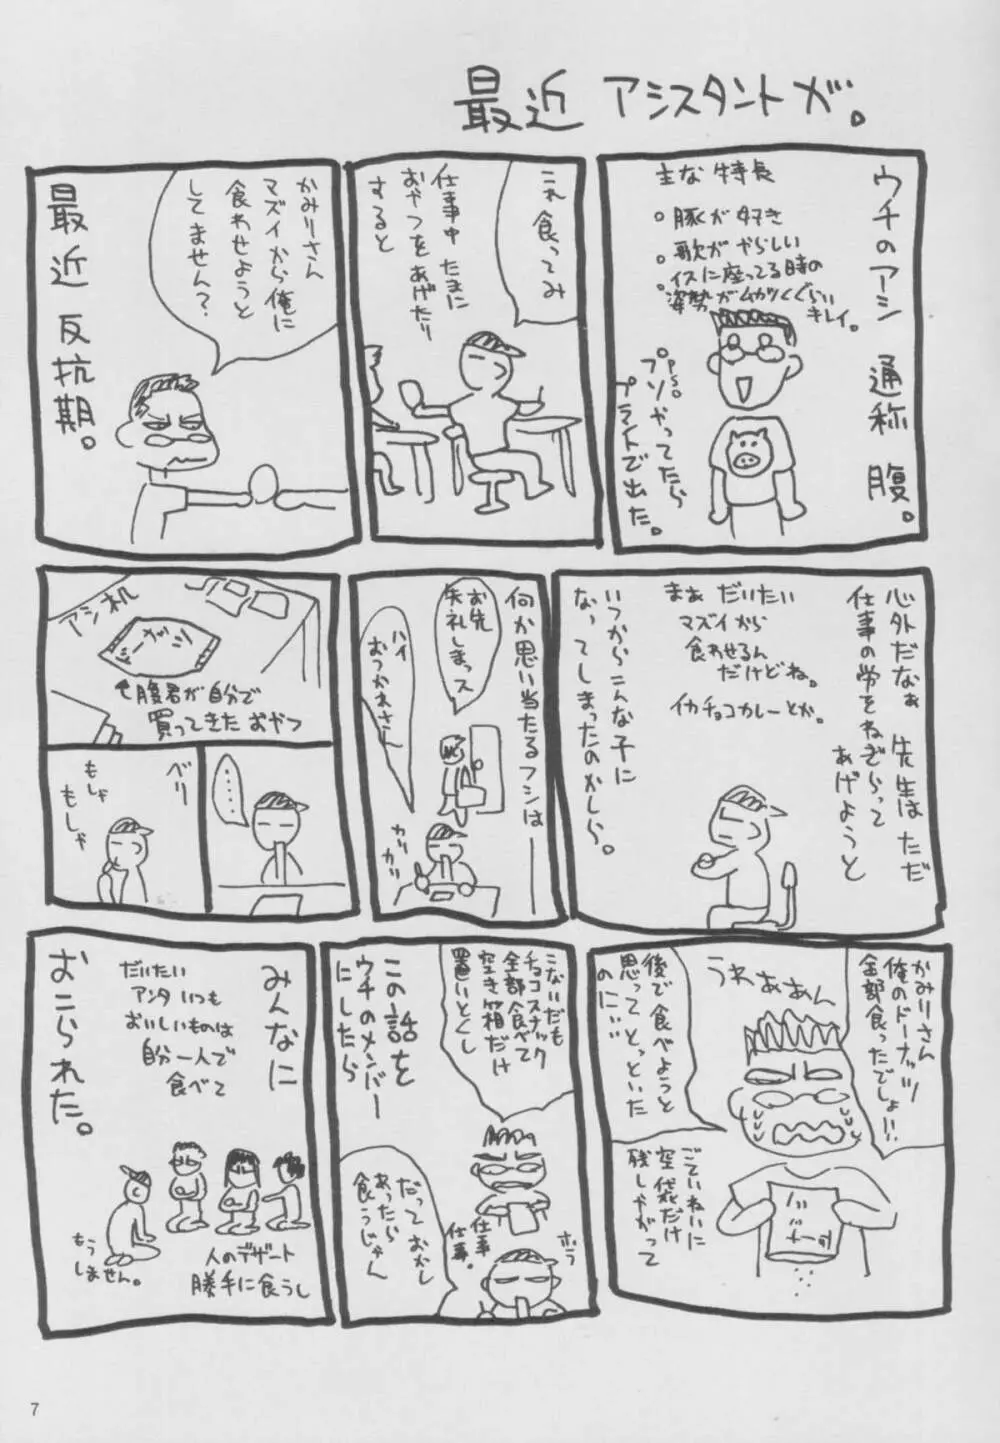 最近 アシスタントが。
ウチのアシ 通称 腹。
主な特長
。豚が好き
。歌がやらしい
。イスに座ってる時の
姿勢がムカツくぐらい
キレイ。
P.S.
プソやってたら
プラントで出た。
これ 食ってみ
仕事中 たまに
おやつをあげたり
すると
かみりさん
マズイから俺に
食わせようと
してません?
最近 反抗期。
心外だなぁ 先生はただ
仕事の労をねぎらって
あげようと
まぁ だいたい
マズイから
食わせるん
だけどね。
イカチョコカレーとか。
いつからこんな子に
なってしまったのかしら。
何か思い当たるフシは
お先
失礼しまっス
ハイ
おつかれさん
カリ
カリ
アシ机
シーガシ
腹君が自分で
買ってきた おやつ
・・・・
ベリ
もしゃ
もしゃ
かみりさん
俺のドーナッツ
全部食ったでしょ!!
うわぁあん
後で食べようと
思って とっといた
のに・・・
ごていねいに
空袋だけ
残しやがって
こないだも
チョコスナック
全部食べて
空き箱だけ
置いとくし
だって おかし
あったら
食うじゃん
ホラ
仕事
仕事。
この話を
ウチのメンバー
にしたら
みんなに
だいたい
アンタ いつも
おいしいものは
自分一人で
食べて
人のデザート
勝手に食うし
もう
しません。
おこられた。
7